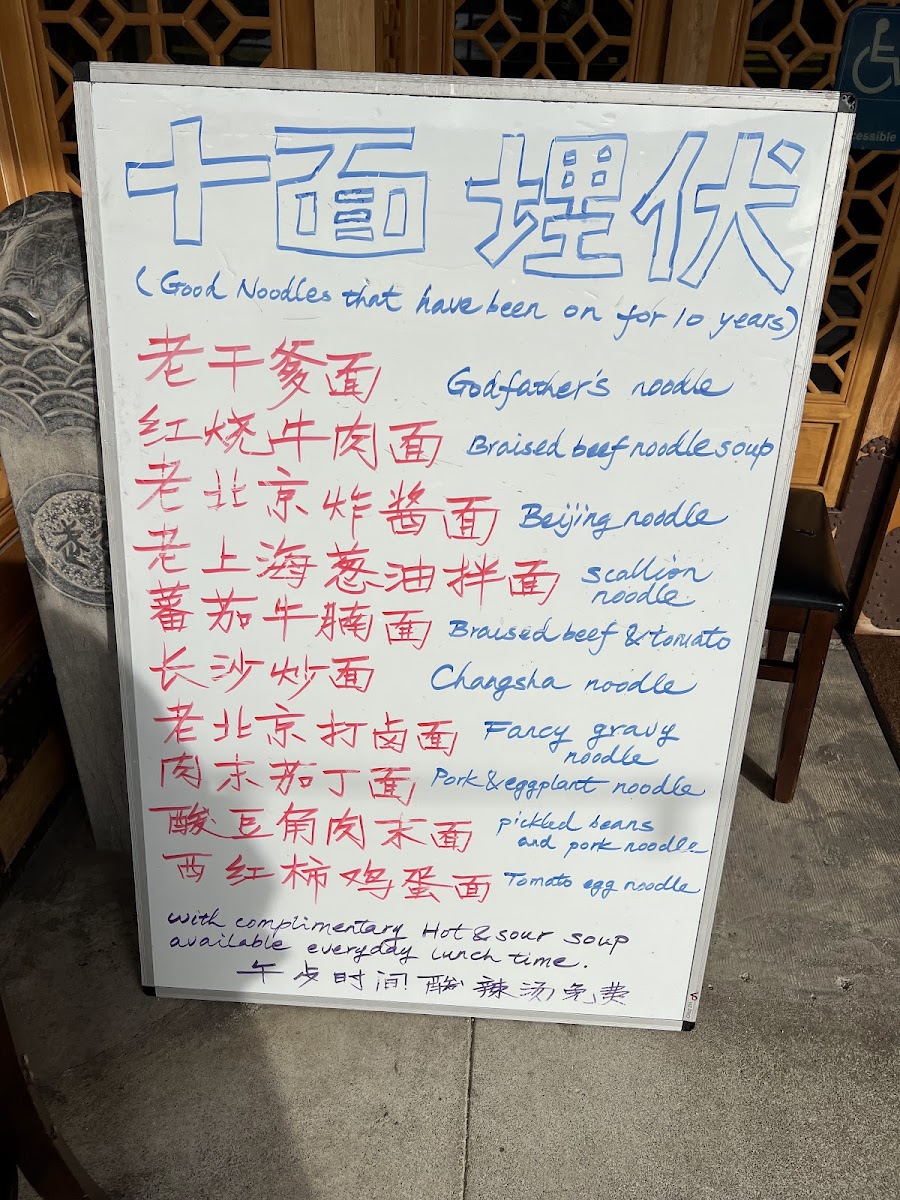 十面埋伏
(Good Noodles that have been on for 10 years)
老干爹面 Godfather's noodle
红烧牛肉面 Braised beef noodle soup
老北京炸酱面 Beijing noodle
老上海葱油拌面 scallion noodle
蕃茄牛腩面 Braised beef & tomato
长沙炒面 Changsha noodle
老北京打卤面 Fancy gravy noodle
肉末茄丁面 Pork & eggplant noodle
酸豆角肉末面 pickled beans and pork noodle
西红柿鸡蛋面 Tomato egg noodle
with complimentary Hot & sour soup
available everyday lunch time.
午步时间酸辣汤免费